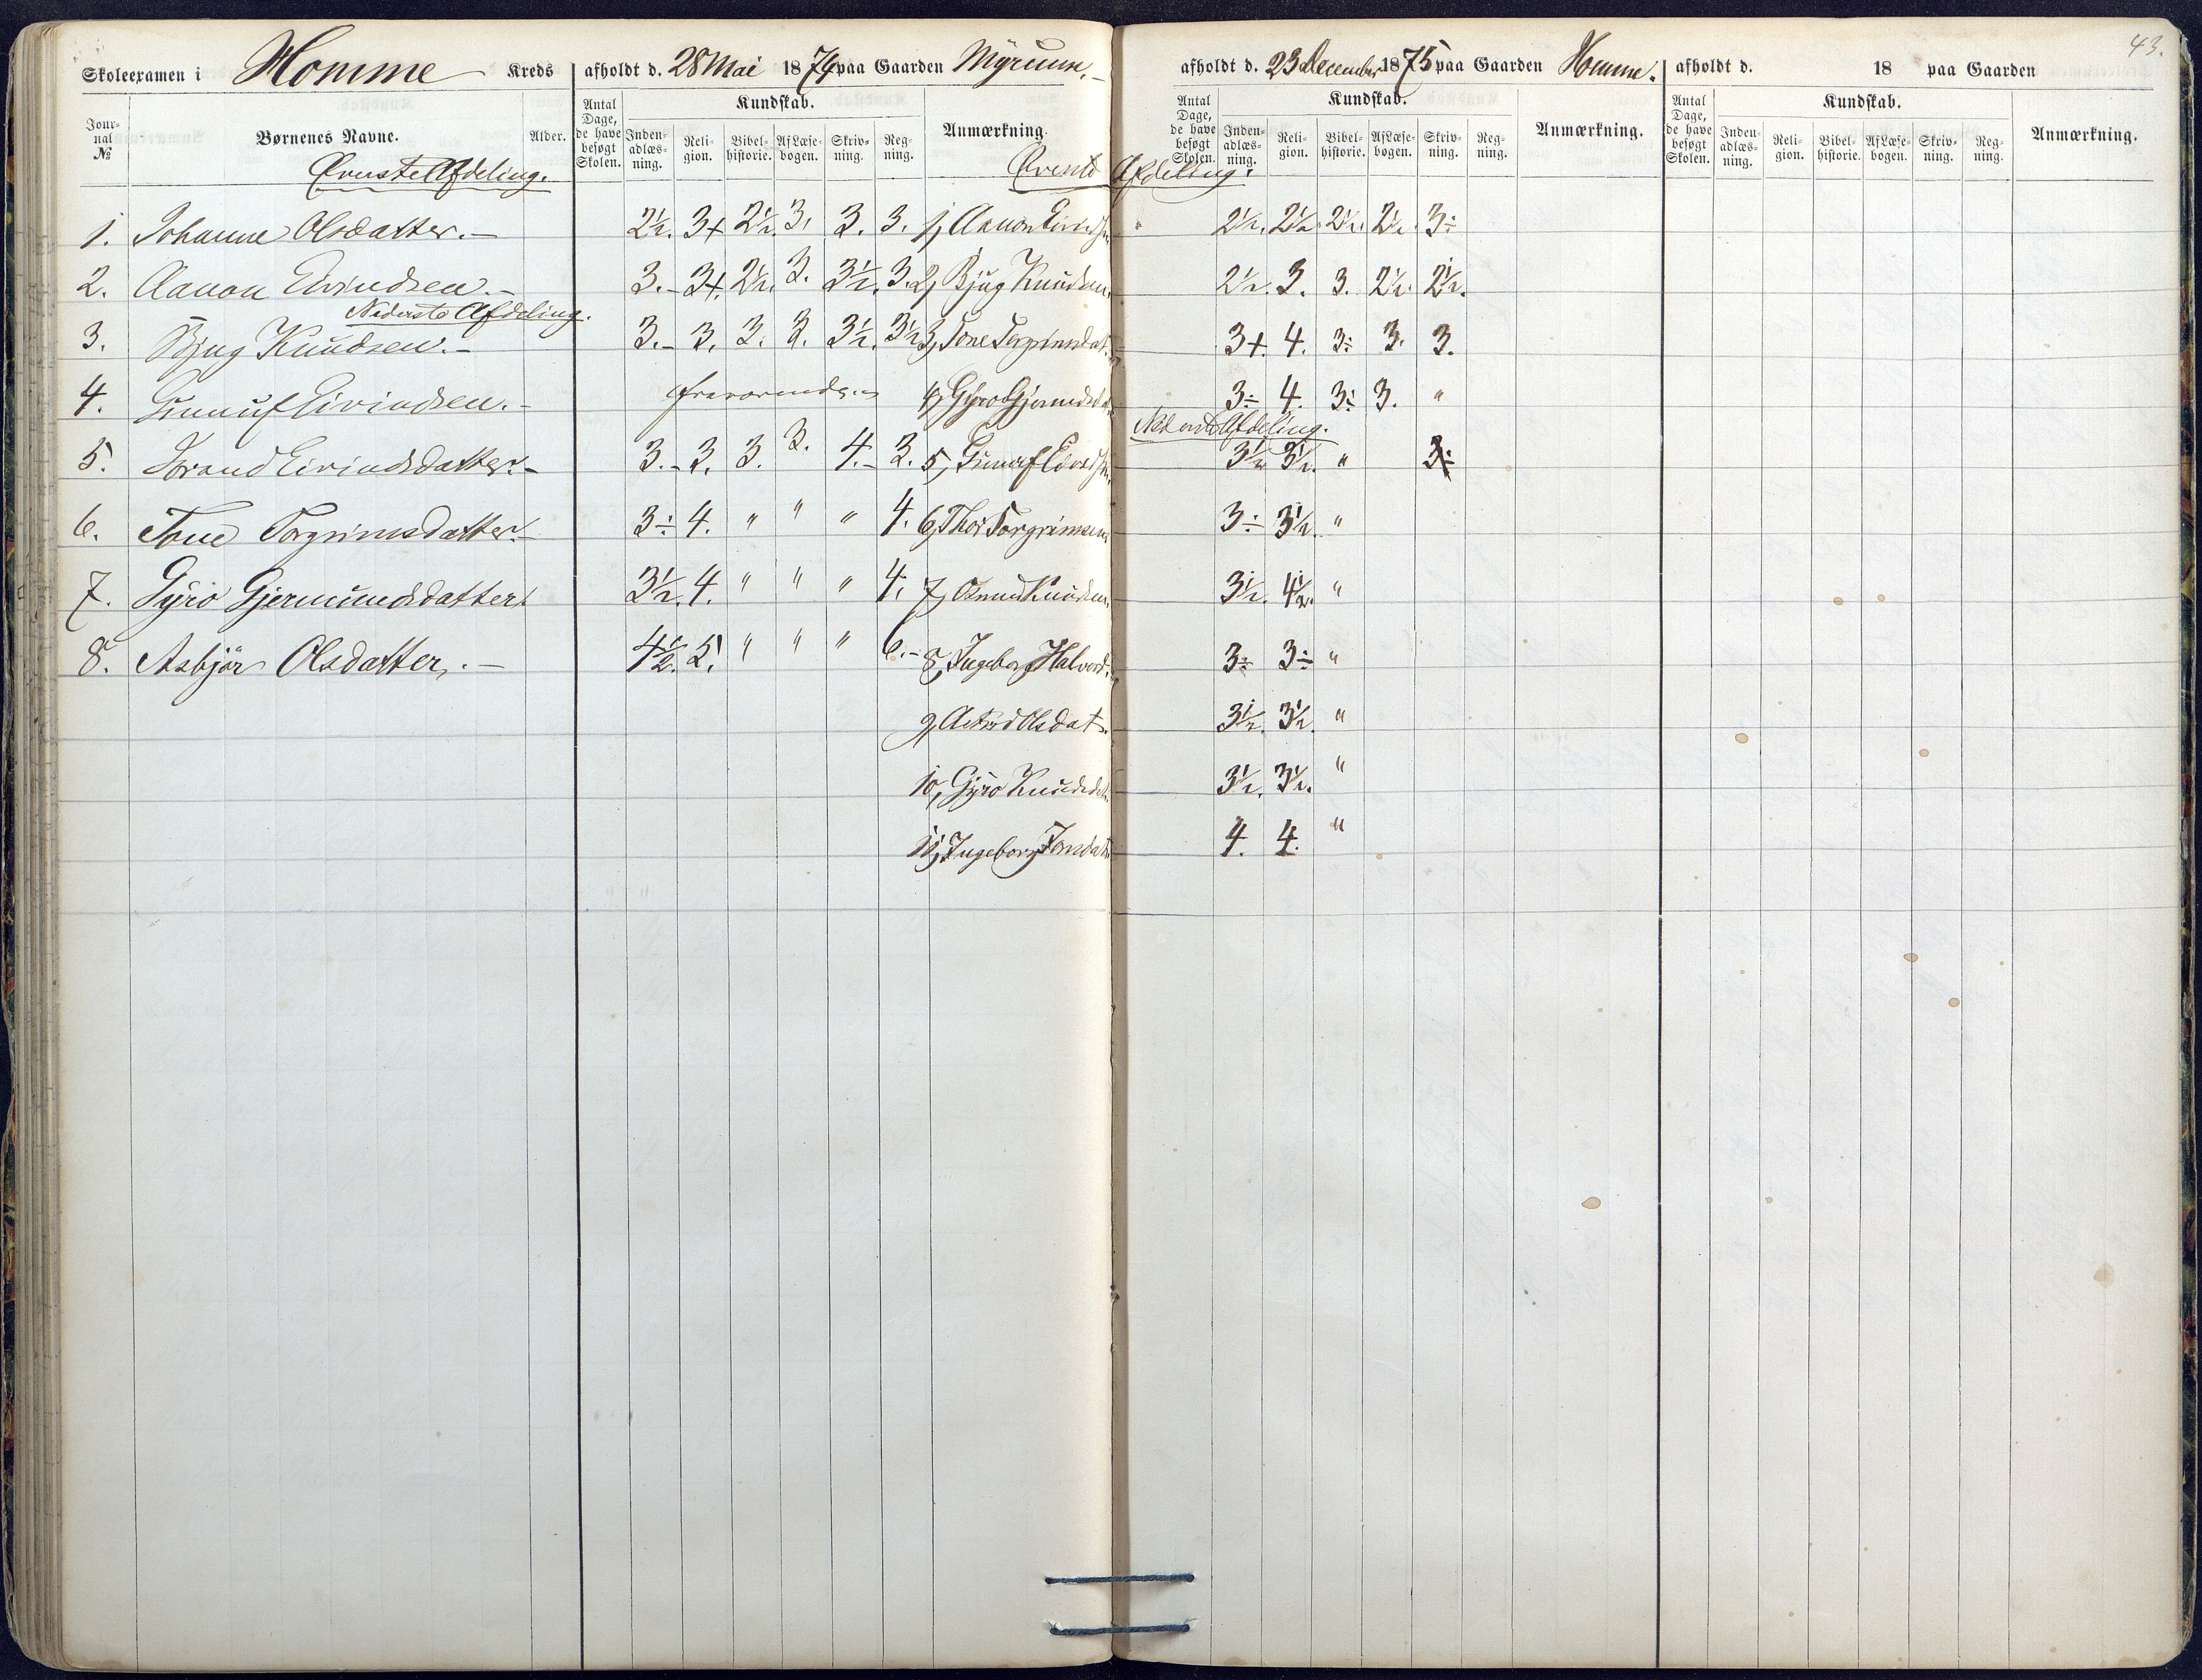 43.
Skoleexamen i Homme Kreds afholdt d. 28 Mai 1874 paa Gaarden
afholdt d. 23 December 1875 paa Gaarden Homme. afholdt d. 18 paa Gaarden
Jour-nal № Børnenes Navne. Alder. Antal Dage, de have besøgt Skolen. Kundskab. Inden-adlæs-ning. Reli-gion. Bibel-historie. Af Læse-bogen. Skriv-ning. Reg-ning. Anmærkning.
Antal Dage, de have besøgt Skolen. Kundskab. Inden-adlæs-ning. Reli-gion. Bibel-historie. Af Læse-bogen. Skriv-ning. Reg-ning. Anmærkning.
Antal Dage, de have besøgt Skolen. Kundskab. Inden-adlæs-ning. Reli-gion. Bibel-historie. Af Læse-bogen. Skriv-ning. Reg-ning. Anmærkning.
Øverste Afdeling. Øverste Afdeling.
1. Johanne Olsdatter.– 2½. 3+ 2½. 3. 3. 3. 1, Aanon 2½. 2½. 2½. 2½. 3÷
2. Aanon Eivindsen.– 3.– 3+. 2½. 3. 3½. 3. 2, Bjug Knudsen. 2½. 3. 3. 2½. 2½.
Nederste Afdeling.
3. Bjug Knudsen.– 3.– 3. 3. 3. 3½. 3½ 3, Tone Torgrimsdat. 3+. 4. 3÷ 3. 3.
4. Gunuf Eivindsen.– fraværende.– 4, Gyro 3÷ 4. 3÷ 3. "
Nederste Afdeling.
5. Eivindsdatter.– 3.– 3. 3. 3. 4.– 3. 5, Gunuf 3½ 3½. " 3÷
6. Tone Torgrimsdatter.– 3÷ 4. " " " 4. 6, Thor Torgrimsen 3÷ 3½. "
7. Gyro Gjermundsdatter. 3½. 4. " " " 4. 7, Knudsen. 3½. 4½. "
8. Asbjør Olsdatter.– 4½. 5. " " " 6.– 8, Ingebor Halvord. 3÷ 3÷ "
9, Olsdat. 3½. 3½. "
10, Gyro Knudsdat. 3½. 3½. "
11, Ingeborg 4. 4. "